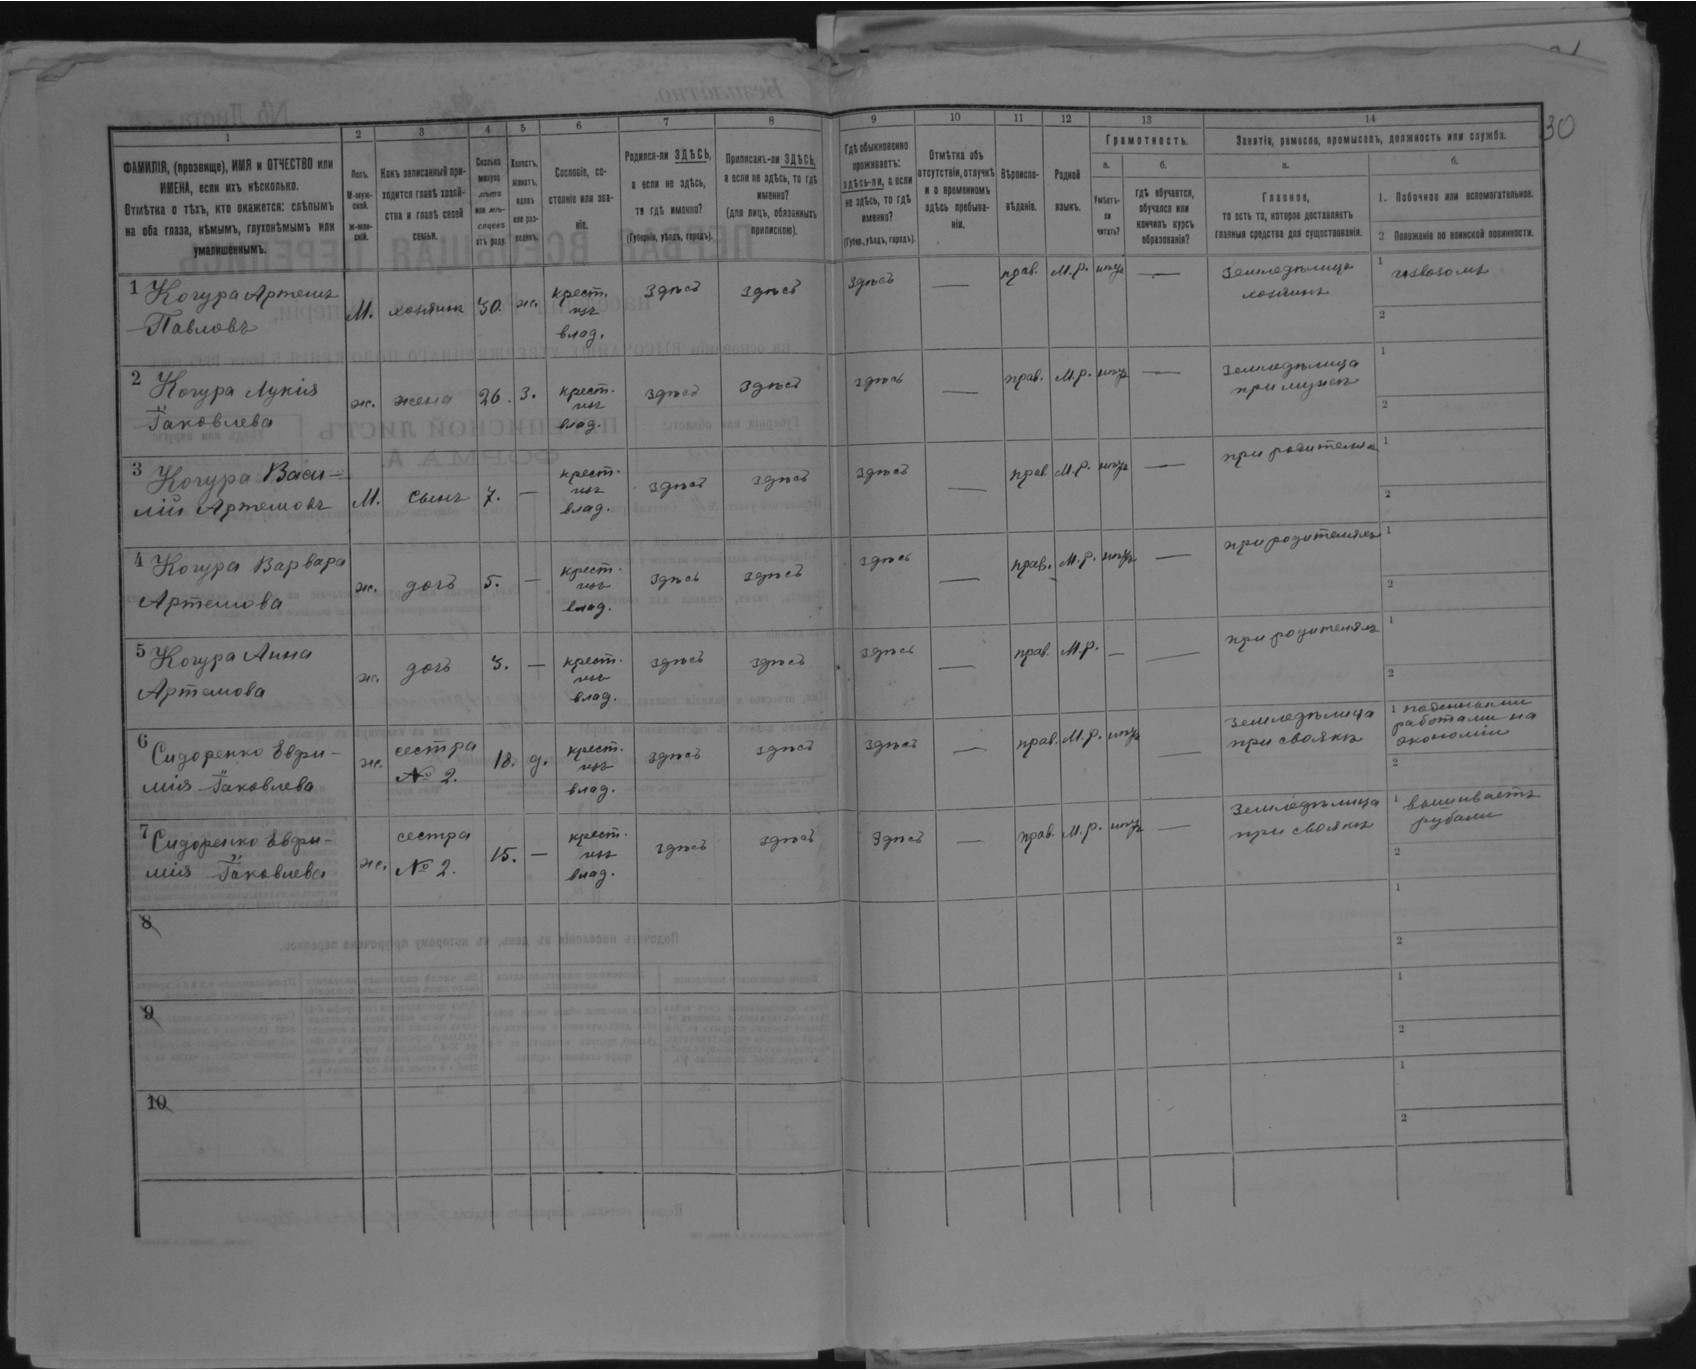 30
1 2 3 4 5 6 7 8 9 10 11 12 13 14
ФАМИЛІЯ, (прозвище), ИМЯ и ОТЧЕСТВО или
ИМЕНА, если ихъ нѣсколько.
Отмѣтка о тѣхъ, кто окажется: слѣпымъ
на оба глаза, нѣмымъ, глухонѣмымъ или
умалишеннымъ.
Полъ.
М-муж-
ской.
Ж-жен-
скій.
Какъ записанный при-
ходится главѣ хозяй-
ства и главѣ своей
семьи.
Сколько
минуло
лѣтъ
или мѣ-
сяцевъ
отъ роду.
Холостъ,
женатъ,
вдовъ
или раз-
веденъ.
Сословіе, со-
стояніе или зва-
ніе.
Родился-ли ЗДѢСЬ,
а если не здѣсь,
то гдѣ именно?
(Губернія, уѣздъ, городъ).
Приписанъ-ли ЗДѢСЬ,
а если не здѣсь, то гдѣ
именно?
(для лицъ, обязанныхъ
припискою).
Гдѣ обыкновенно
проживаетъ:
здѣсь-ли, а если
не здѣсь, то гдѣ
именно?
(Губер., уѣздъ, городъ).
Отмѣтка объ
отсутствіи, отлучкѣ
и о временномъ
здѣсь пребыва-
ніи.
Вѣроиспо-
вѣданіе.
Родной
языкъ.
Грамотность.
а.
Умѣетъ-
ли
читать?
б.
гдѣ обучается,
обучался или
кончилъ курсъ
образованія?
Занятіе, ремесло, промыселъ, должность или служба.
а.
Главное,
то есть то, которое доставляетъ
главныя средства для существованія.
б.
1. Побочное или вспомогательное.
2 Положеніе по воинской повинности.
1 Когура Артемъ
Павловъ
М. хозяинъ 30. ж. крест.
изъ
влад. здѣсь здѣсь здѣсь — прав. М.р. нѣтъ — Земледѣлецъ
хозяинъ 1 извозомъ
2
2 Когура Лукія
Яковлева
ж. жена 26. З. крест.
изъ
влад. здѣсь здѣсь здѣсь — прав. М.р. нѣтъ — Земледѣлица
при мужѣ 1
2
3 Когура Васи-
лій Артемовъ
М. сынъ 7. — крест.
изъ
влад. здѣсь здѣсь здѣсь — прав М.р. нѣтъ — при родителяхъ 1
2
4 Когура Варвара
Артемова
ж. дочь 5. — крест.
изъ
влад. здѣсь здѣсь здѣсь — прав. М.р. нѣтъ — при родителяхъ 1
2
5 Когура Анна
Артемова
ж. дочь 3. — крест.
изъ
влад. здѣсь здѣсь здѣсь — прав. М.р. — — при родителяхъ 1
2
6 Сидоренко Евфи-
мія Яковлева
ж. сестра
№ 2. 18. д. крест.
изъ
влад. здѣсь здѣсь здѣсь — прав. М.р. нѣтъ — Земледѣлица
при своякѣ 1 поденными
работами на
экономіи
2
7 Сидоренко Евфи-
мія Яковлева
ж. сестра
№ 2. 15. — крест.
изъ
влад. здѣсь здѣсь здѣсь — прав. М.р. нѣтъ — Земледѣлица
при своякѣ 1 вышиваетъ
2
8 1
2
9 1
2
10 1
2